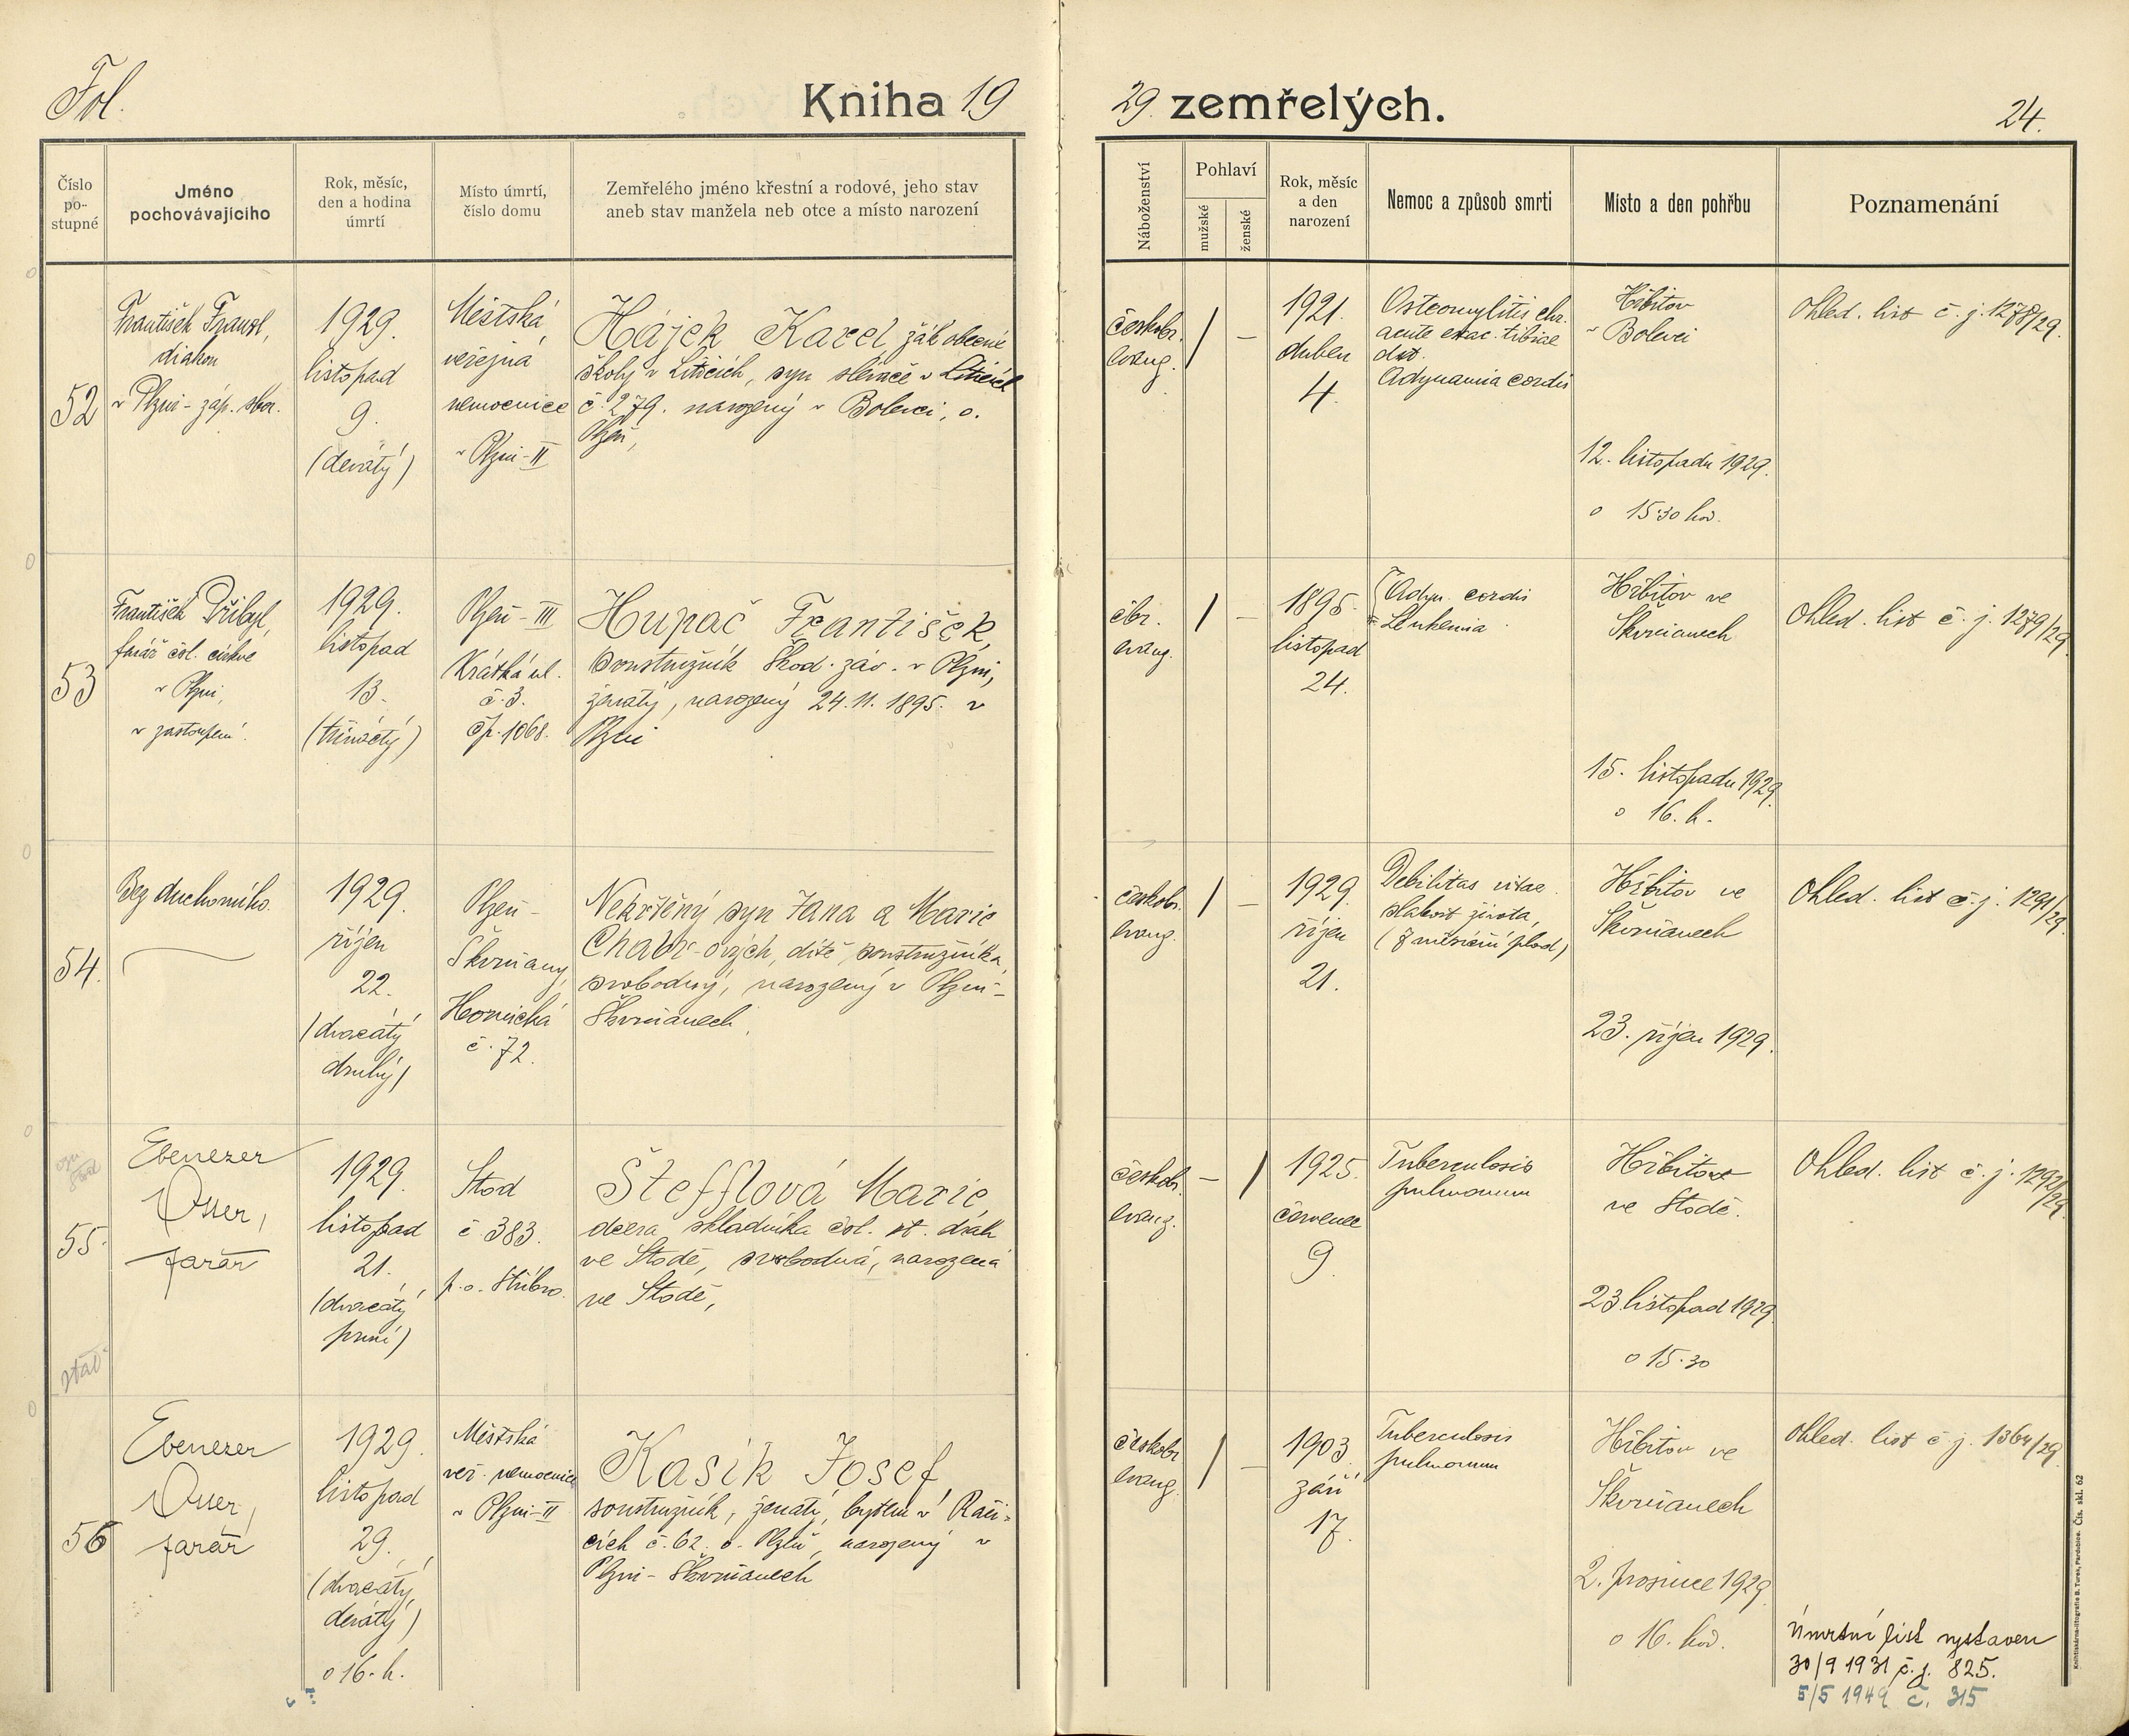 Fol.
Kniha 19
29. zemřelých.
24.
Číslo
po-
stupné
Jméno
pochovávajícího
Rok, měsíc,
den a hodina
úmrtí
Místo úmrtí,
číslo domu
Zemřelého jméno křestní a rodové, jeho stav
aneb stav manžela neb otce a místo narození
Náboženství
Pohlaví
mužské
ženské
Rok, měsíc
a den
narození
Nemoc a způsob smrti
Místo a den pohřbu
Poznamenání
52
František
diakon
v Plzni - záp. sbor.
1929.
listopad
9.
(devátý)
Městská
veřejná
nemocnice
v Plzni-II
Hájek Karel žák obecné
školy v Liticích, syn slevače v Liticích
č. 279. narozený v Bolevci, o.
Plzeň,
českobr.
evang.
/ –
1921.
duben
4.
Osteomylitis chr.
acute exac. tibiae
dxt.
Adynamia cordis
Hřbitov
v Bolevci
12. listopadu 1929.
o 15·30 hod.
Ohled. list č. j. 1278/29.
53
František Přibyl,
farář čsl. církve
v Plzni,
v zastoupení.
1929.
listopad
13.
(třináctý)
Plzeň - III
Krátká ul.
č. 3.
čp. 1068.
Hupač František,
soustružník Škod. záv. v Plzni,
ženatý, narozený 24.11.1895. v
Plzni
čbr.
evang.
/ –
1895.
listopad
24.
Adyn. cordis
Leukemia
Hřbitov ve
Škvrňanech
15. listopadu 1929.
o 16. h.
Ohled. list č. j. 1279/29.
54.
Bez duchovního.
1929.
říjen
22.
(dvacátý
druhý)
Plzeň -
Škvrňany,
Hornická
č. 72.
Nekřtěný syn Jana a Marie
Chabr-ových, dítě soustružníka,
svobodný, narozený v Plzni-
Škvrňanech.
českobr.
evang.
/ –
1929.
říjen
21.
Debilitas vitae.
slabost života,
(7 měsíční plod)
Hřbitov ve
Škvrňanech
23. říjen 1929.
Ohled. list č. j. 1291/29.
55.
Ebenezer
Otter,
farář
1929.
listopad
21.
(dvacátý
první)
Stod
č. 383.
p. o. Stříbro.
Štefflová Marie,
dcera skladníka čsl. st. drah
ve Stodě, svobodná, narozená
ve Stodě,
českobr.
evang.
– /
1925.
červenec
9.
Tuberculosis
pulmonum
Hřbitov
ve Stodě.
23 listopad 1929.
o 15·30
Ohled. list č. j. 1292/29.
56
Ebenezer
Otter,
farář
1929.
listopad
29.
(dvacátý
devátý)
o 16. h.
Městská
veř. nemocnice
v Plzni-II
Kasík Josef,
soustružník, ženatý, bytem v Radči-
cích č. 62. o. Plzeň, narozený v
Plzni - Škvrňanech
českobr.
evang.
/ –
1903.
září
17.
Tuberculosis
pulmonum
Hřbitov ve
Škvrňanech
2. prosince 1929.
o 16. hod.
Ohled. list č. j. 1364/29.
Úmrtní list vystaven
30/9 1931 č. j. 825.
5/5 1949 č. 315
Knihtiskárna-litografie B. Turek, Pardubice. Čís. skl. 62